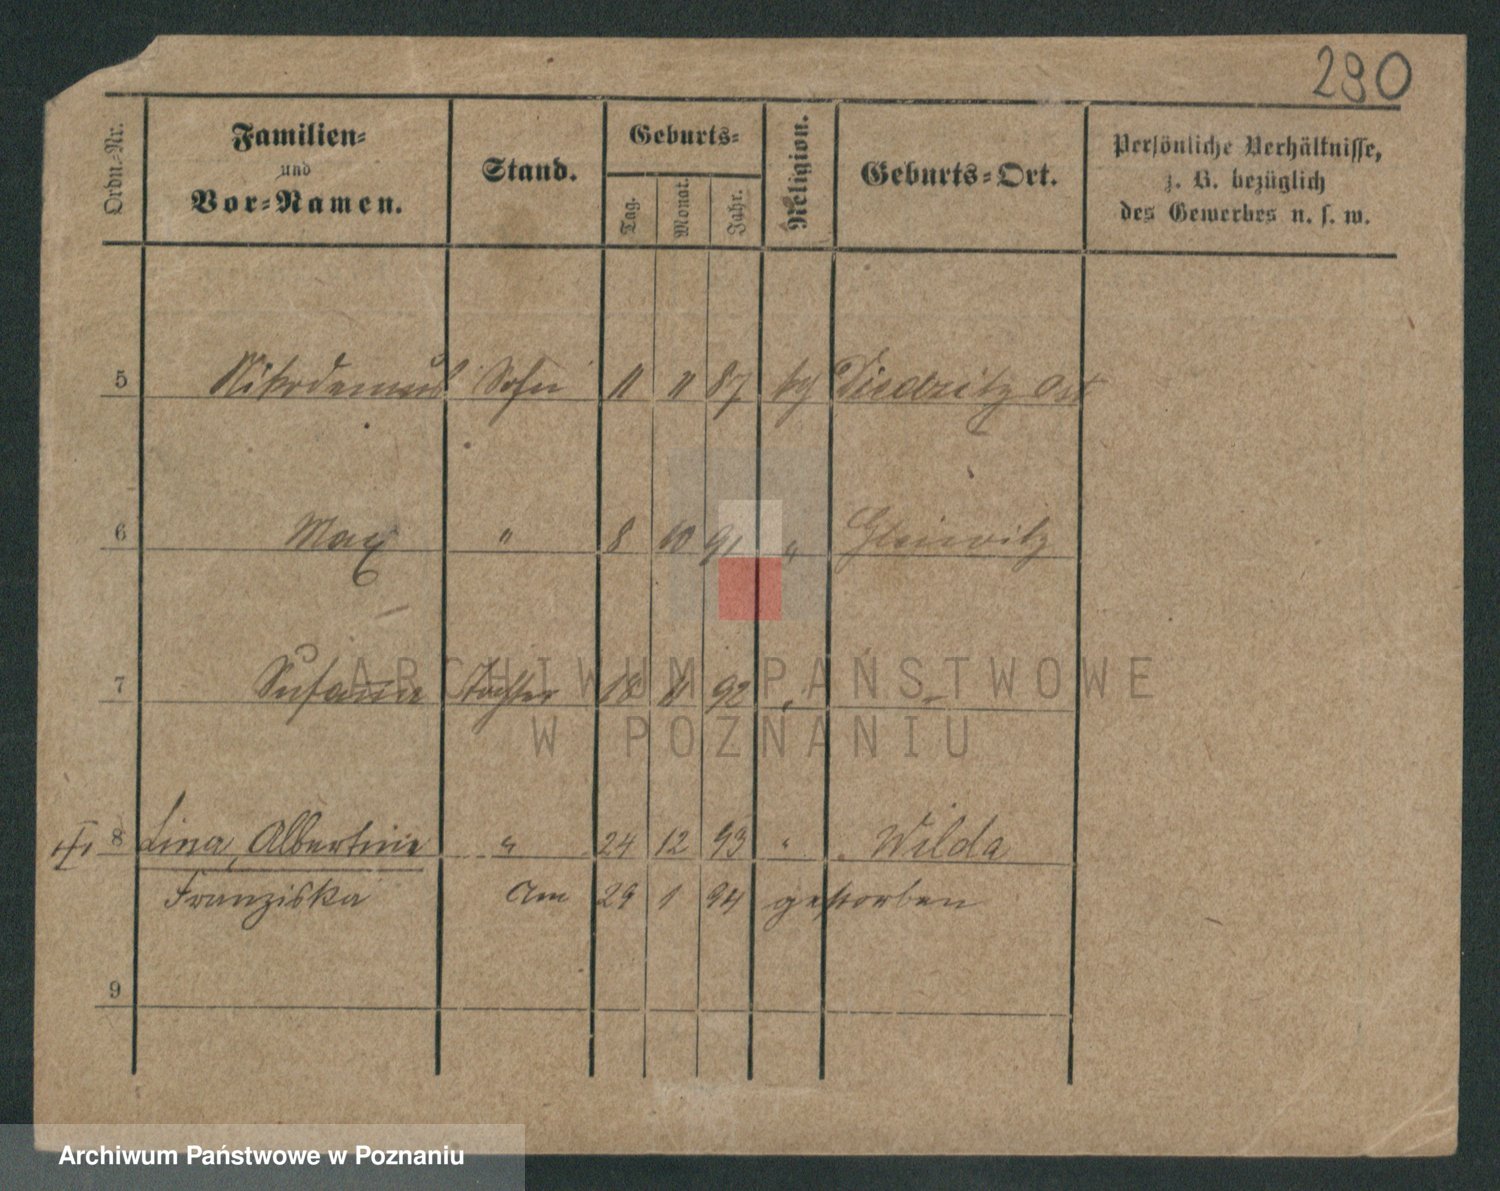 290
Ordn.-Nr. Familien- und Vor-Namen. Stand. Geburts- Tag. Monat. Jahr. Religion. Geburts-Ort. Persönliche Verhältnisse, z. B. bezüglich des Gewerbes u. s. w.
5 Nikodemus Sohn 11 11 87 kg Ost
6 Max " 8 10 91 " Gleiwitz
7 Susanne Tochter 18 11 92 " "
8 Lina, Albertine " 24 12 93 " Wilda
Franziska Am 29 1 94 gestorben
9
ARCHIWUM PAŃSTWOWE
W POZNANIU
Archiwum Państwowe w Poznaniu